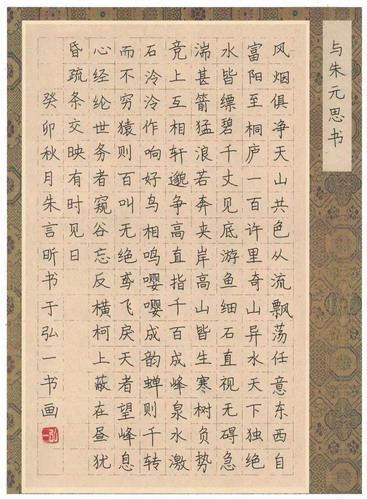 与朱元思书
风烟俱净天山共色从流飘荡任意东西自
富阳至桐庐一百许里奇山异水天下独绝
水皆缥碧千丈见底游鱼细石直视无碍急
湍甚箭猛浪若奔夹岸高山皆生寒树负势
竞上互相轩邈争高直指千百成峰泉水激
石泠泠作响好鸟相鸣嘤嘤成韵蝉则千转
而不穷猿则百叫无绝鸢飞戾天者望峰息
心经纶世务者窥谷忘反横柯上蔽在昼犹
昏疏条交映有时见日
癸卯秋月朱言昕书于弘一书画
弘一